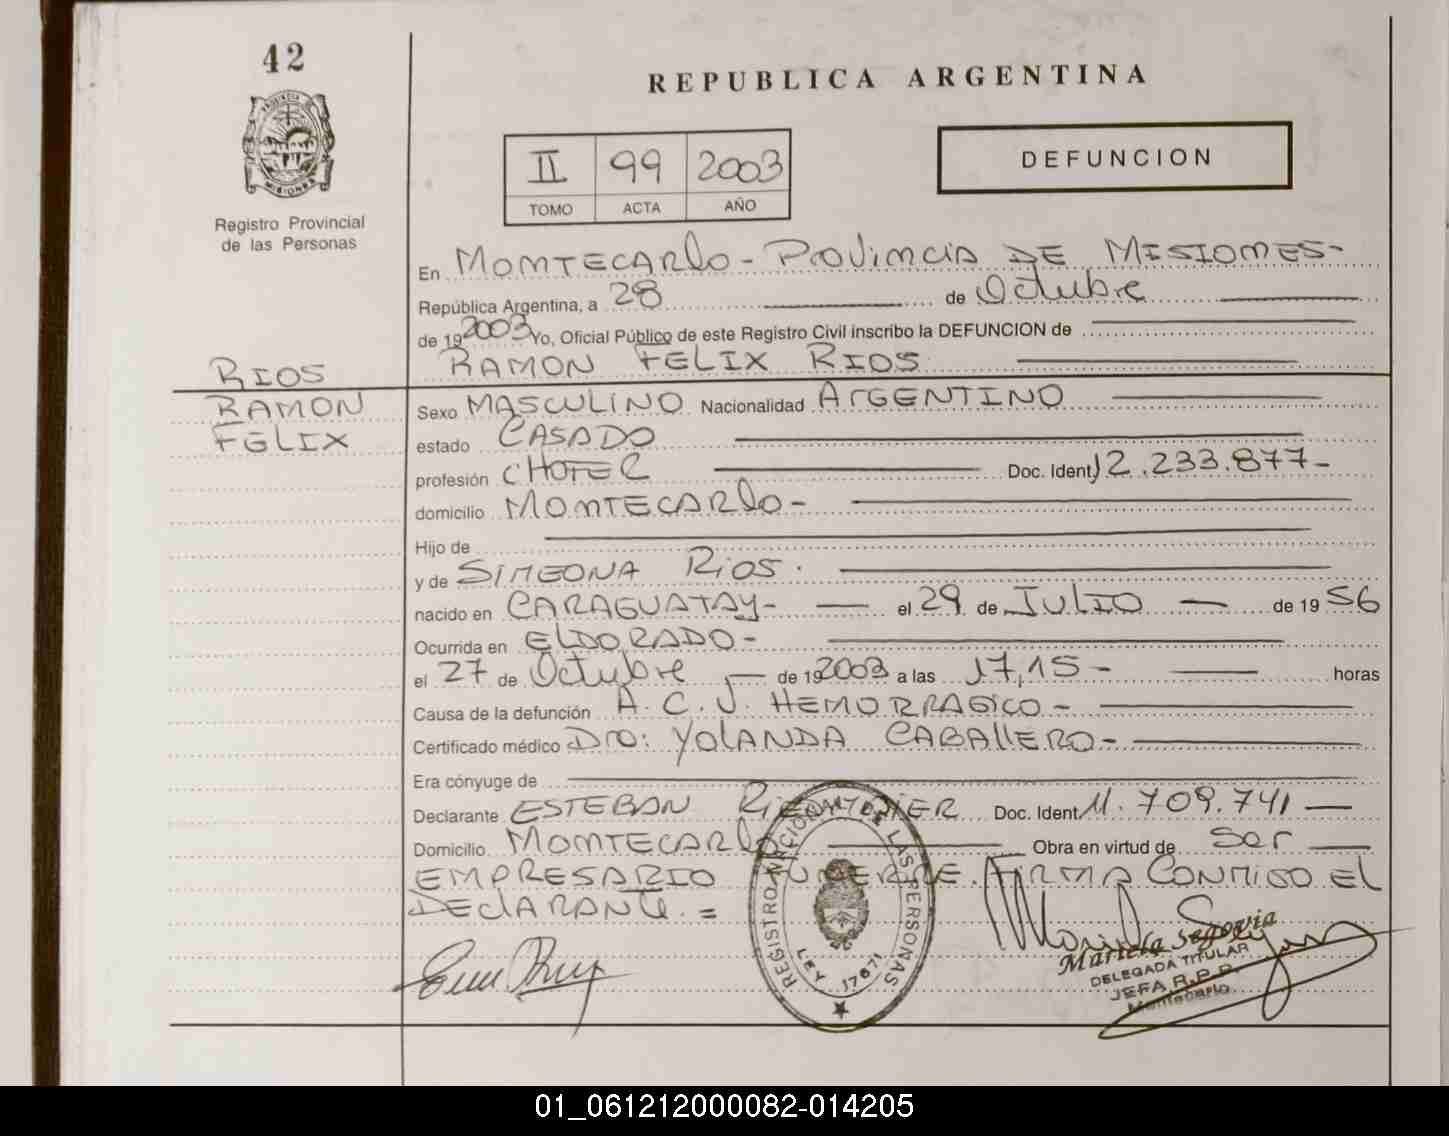 42
REPUBLICA ARGENTINA
PROVINCIA DE
MISIONES
Registro Provincial
de las Personas
II 99 2003
TOMO ACTA AÑO
DEFUNCION
En MONTECARLO - PROVINCIA DE MISIONES-
República Argentina, a 28 de Octubre
de 19 2003 Yo, Oficial Público de este Registro Civil inscribo la DEFUNCION de
RAMON FELIX RIOS
RIOS
RAMON
FELIX
Sexo MASCULINO Nacionalidad ARGENTINO
estado CASADO
profesión CHOFER Doc. Ident 12.233.877-
domicilio MONTECARLO-
Hijo de
y de SIMEONA RIOS.
nacido en CARAGUATAY- el 29 de JULIO de 19 56
Ocurrida en ELDORADO-
el 27 de Octubre de 19 2003 a las 17,15- horas
Causa de la defunción A. C. V. HEMORRAGICO-
Certificado médico Dra: YOLANDA CABALLERO-
Era cónyuge de
Declarante ESTEBAN Doc. Ident 11.709.741
Domicilio MONTECARLO Obra en virtud de ser
EMPRESARIO FUNEBRE. FIRMA CONMIGO EL
DECLARANTE.=
REGISTRO NACIONAL DE LAS PERSONAS
LEY 17671
Mariela Segovia
DELEGADA TITULAR
JEFA R.P.P.
Montecarlo
01_061212000082-014205